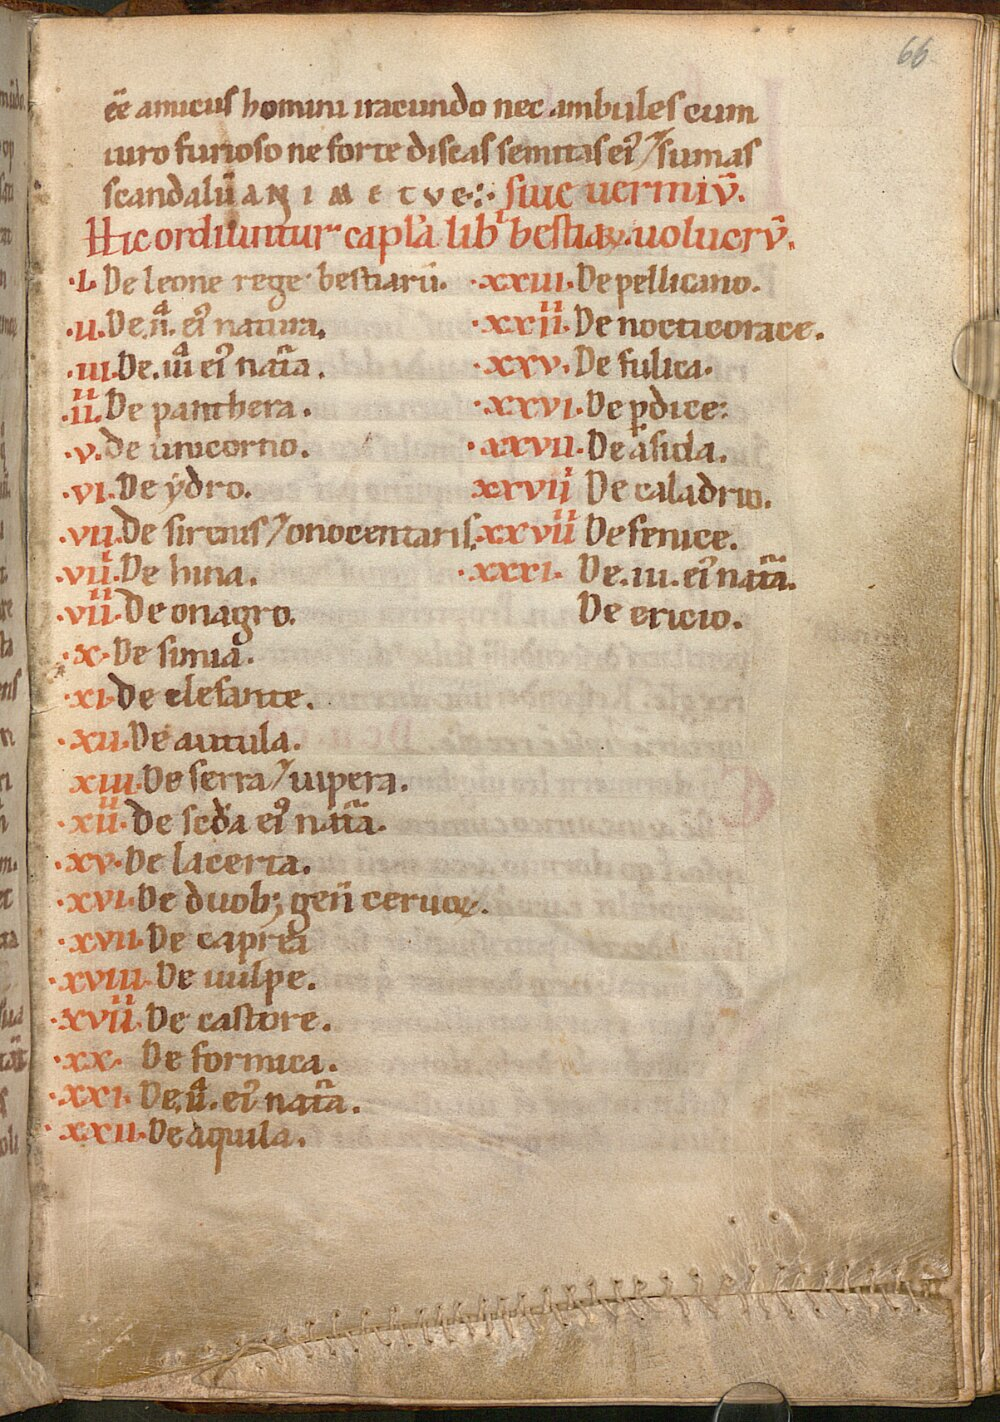 66
eē amicus homini iracundo nec ambules cum
uiro furioso ne forte discas semitas ei⁹ ⁊ sumas
scandalū ANIMETUE·:· siue uermiū.
Hic ordiuntur capl̄a lib¹ bestiaꝝ. uolucrū.
·I· De leone rege bestiarū.
·II· De .ıı.ᵃ ei⁹ natura.
·III· De .ıııᵃ ei⁹ nat̄a.
·IIII· De panthera.
·V· De unicorno.
·VI· De ydro.
·VII· De sirenis ⁊ onocentaris.
·VIII· De hina.
·VIIII· De onagro.
·X· De simia.
·XI· De elefante.
·XII· De autula.
·XIII· De serra ⁊ uipera.
·XIIII· De scd̄a ei⁹ nat̄a.
·XV· De lacerta.
·XVI· De duob; geń ceruoꝝ.
·XVII· De caprea
·XVIII· De uulpe.
·XVIIII· De castore.
·XX· De formica.
·XXI· De .ıı.ᵃ ei⁹ nat̄a.
·XXII· De aquila.
·XXIII· De pellicano.
·XXIIII· De nocticorace.
·XXV· De fulica.
·XXVI· De ꝑdice:
·XXVII· De asida.
XXVIII De caladrio.
XXVIIII De fenice.
·XXXI· De .ııı. ei⁹ nat̄a.
De ericio.